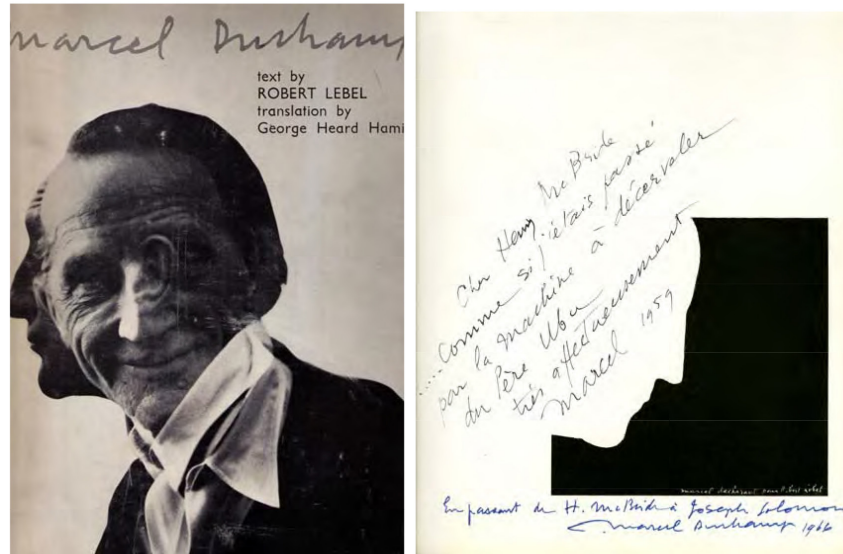 marcel Duchamp
text by
ROBERT LEBEL
translation by
George Heard Hami
Cher Henry McBride
..... Comme si j'étais passé
par la machine à décerveler
du Père Ubu
très affectueusement
Marcel 1959
marcel dechiravit pour robert lebel
En passant de H. McBride à Joseph Solomon
Marcel Duchamp 1966